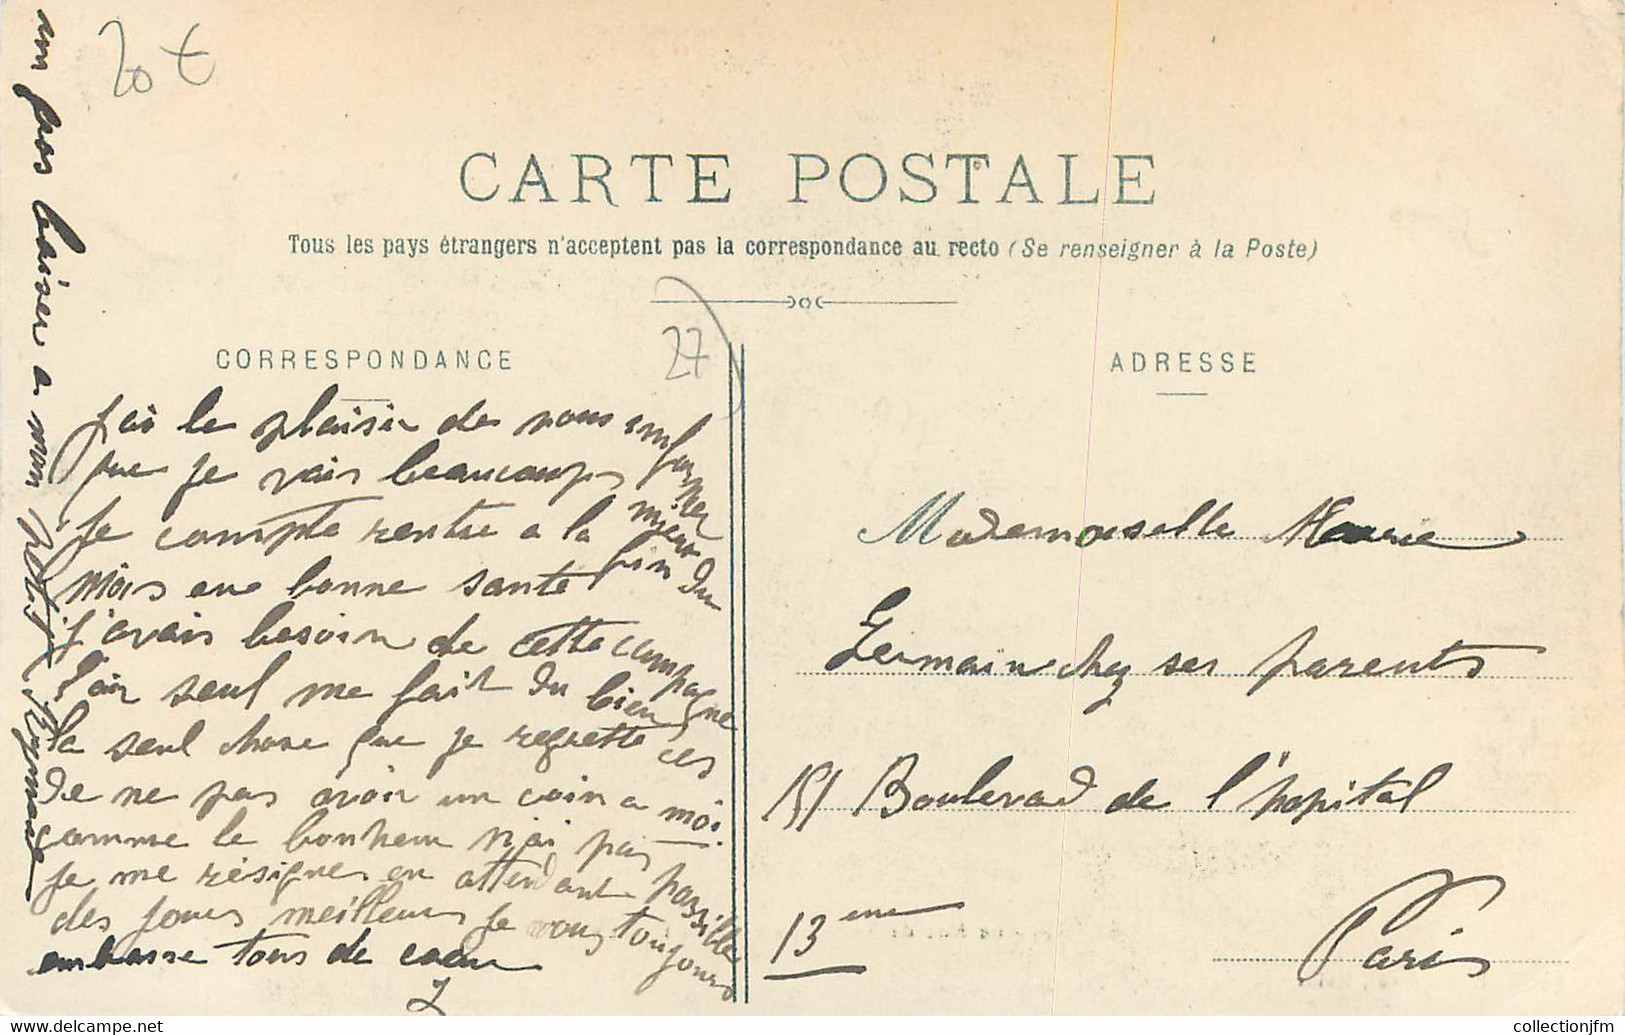 20 €
CARTE POSTALE
Tous les pays étrangers n'acceptent pas la correspondance au recto (Se renseigner à la Poste)
27
CORRESPONDANCE
j'ai le plaisir de vous informer
que je vais beaucoup mieux
Je compte rentre a la fin du
mois en bonne santé
j'avais besoin de cette campagne
l'air seul me fait du bien
la seul chose que je regrette ces
de ne pas avoir un coin a moi.
comme le bonheur n'ai pas possible
je me résigne en attendant
des jours meilleurs je vous toujours
embrasse tous de coeur
un gros baiser a mon
ADRESSE
Mademoiselle Marie
Germain chez ses parents
151 Boulevad de l'hopital
13 eme
Paris
www.delcampe.net
collectionjfm